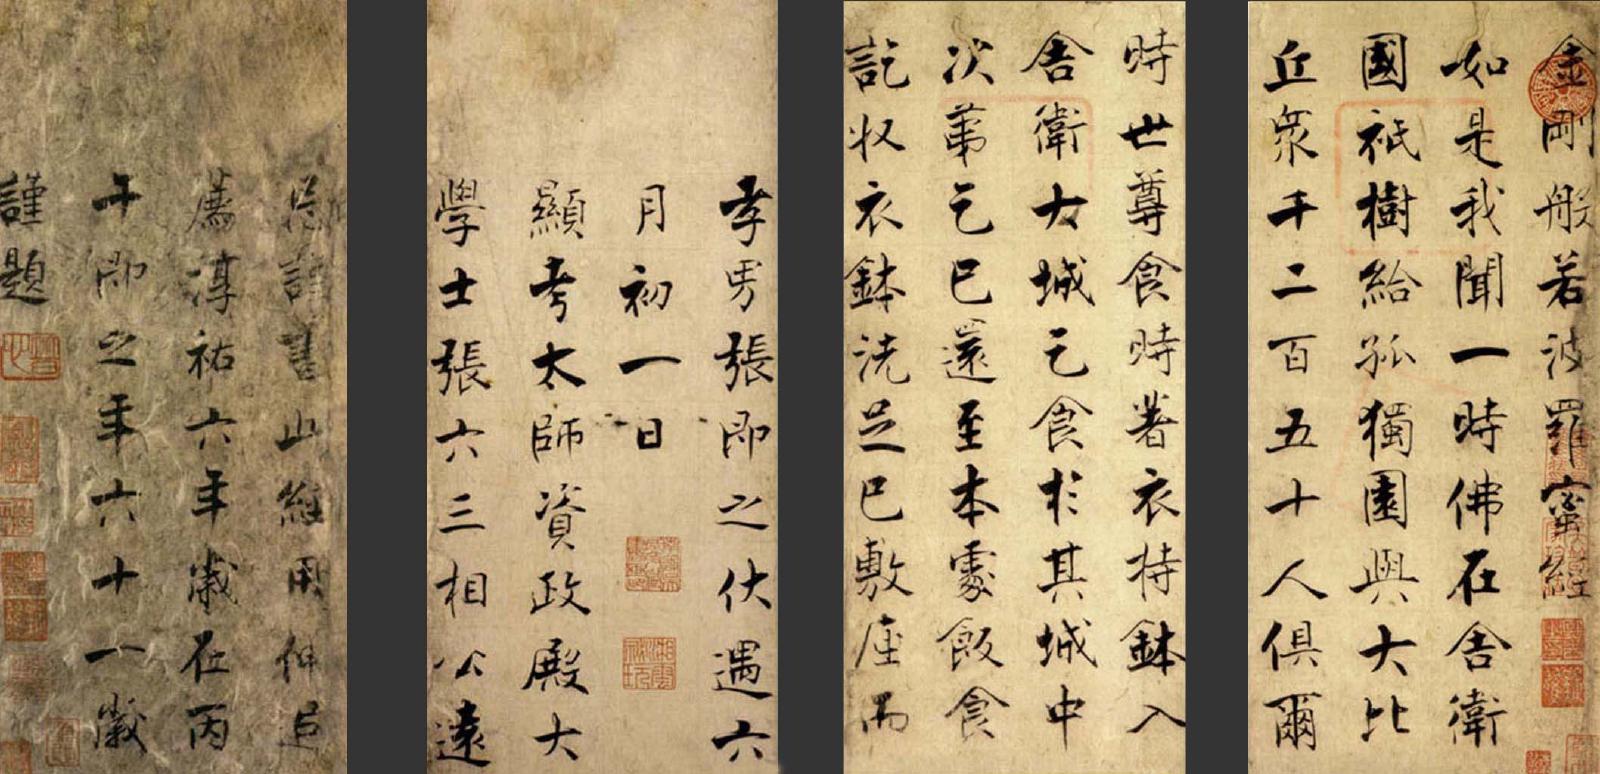 金剛般若波羅蜜經
如是我聞一時佛在舍衛
國祇樹給孤獨園與大比
丘眾千二百五十人俱爾
時世尊食時著衣持鉢入
舍衛大城乞食於其城中
次第乞已還至本處飯食
訖收衣鉢洗足已敷座而
孝男張即之伏遇六
月初一日
顯考太師資政殿大
學士張六三相公遠
忌謹書此經用伸追
薦淳祐六年歲在丙
午即之年六十一歲
謹題